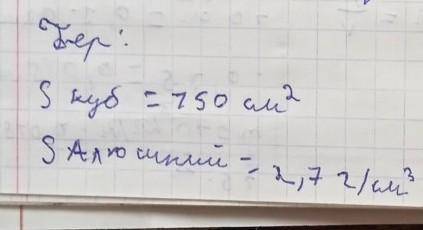 Бер:
S куб = 150 см²
S Алюминий = 2,7 г/см³